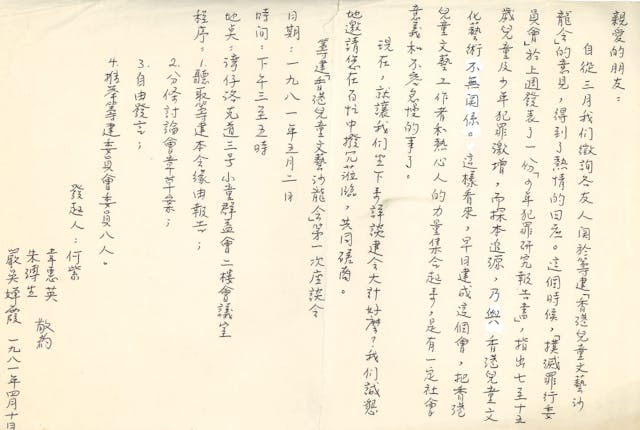 親愛的朋友：
自從三月我們徵詢各友人關於籌建「香港兒童文藝沙
龍」的意見，得到了熱情的回应。這個時候，「撲滅罪行委
員會」於上週發表了一份「少年犯罪研究報告書」，指出七至十五
歲兒童及少年犯罪激增，而探本追源，乃與香港兒童文
化藝術不無関係。這樣看來，早日建成這個會，把香港
兒童文藝工作者和熱心人的力量集合起來，是有一定社會
意義和不容怠慢的事了。
現在，就讓我們坐下來詳談建会大計好嗎？我們誠懇
地邀請您在百忙中撥冗蒞臨，共同磋商。
籌建「香港兒童文藝沙龍」会第一次座談会
日期：一九八一年五月二日
時間：下午三至五時
地点：灣仔洛克道三号小童群益會二樓會議室
程序：1.聽取籌建本会緣由報告；
2.分條討論會章草案；
3.自由發言；
4.推举籌建委員會委員八人。
發起人：何紫
韋惠英
朱溥生 敬約
嚴吳嬋霞 一九八一年四月十日